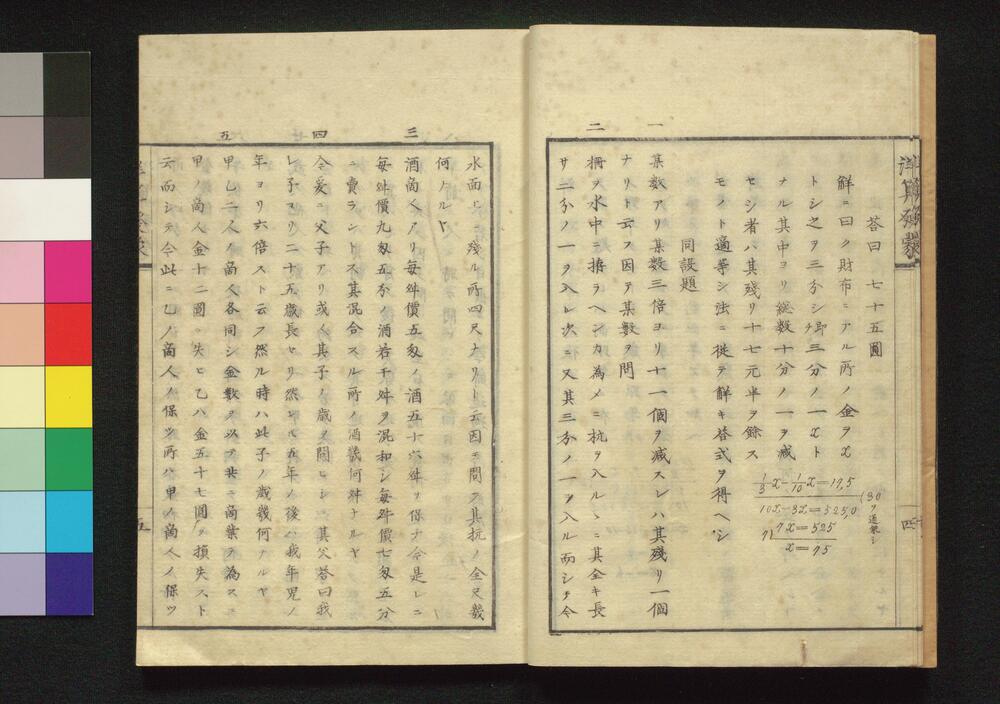 答曰 七十五圓
解ニ曰ク財布ニアル所ノ金ヲx
トシ之ヲ三分シ即チ三分ノ一xト
ナル其中ヨリ総数十分ノ一ヲ減
セシ者ハ其残リ十七元半ヲ餘ス
モノト適等シ法ニ従テ解キ答式ヲ得ヘシ
1/3x−1/10x=17,5
(30ヲ遍乗シ
10x−3x=525,0
7)7x=525
x=75
同設題
一
某数アリ某数三倍ヨリ十一個ヲ減スレハ其残リ一個
ナリト云フ因テ某数ヲ問
二
柵ヲ水中ニ搆ラヘンカ為メニ杭ヲ入ルヽニ其全キ長
サ二分ノ一ヲ入レ次ニ又其三分ノ一ヲ入ル而シテ今
水面上残ル所四尺ナリト云因テ問フ其杭ノ全尺幾
何ナルト
三
酒商人アリ毎舛價五匁ノ酒五十六舛ヲ保ナ今是レニ
毎舛價九匁五分ノ酒若干舛ヲ混和シ毎舛價七匁五分
ニ賣ラントス其混合スル所ノ酒幾何舛ナルヤ
四
今爰ニ父子アリ或人其子ノ歳ヲ問ヒシニ其父答曰我
レ子ヨリ二十五歳長セリ然レ𪜈五年ノ後ハ我年児ノ
年ヨリ六倍スト云フ然ル時ハ此子ノ歳幾何ナルヤ
五
甲乙二人ノ商人各同シ金数ヲ以テ共ニ商業ヲ為スニ
甲ノ商人金十二圓ヲ失ヒ乙ハ金五十七圓ヲ損失スト
云而シテ今此ニ乙ノ商人ノ保ツ所ハ甲ノ商人ノ保ツ
四
五